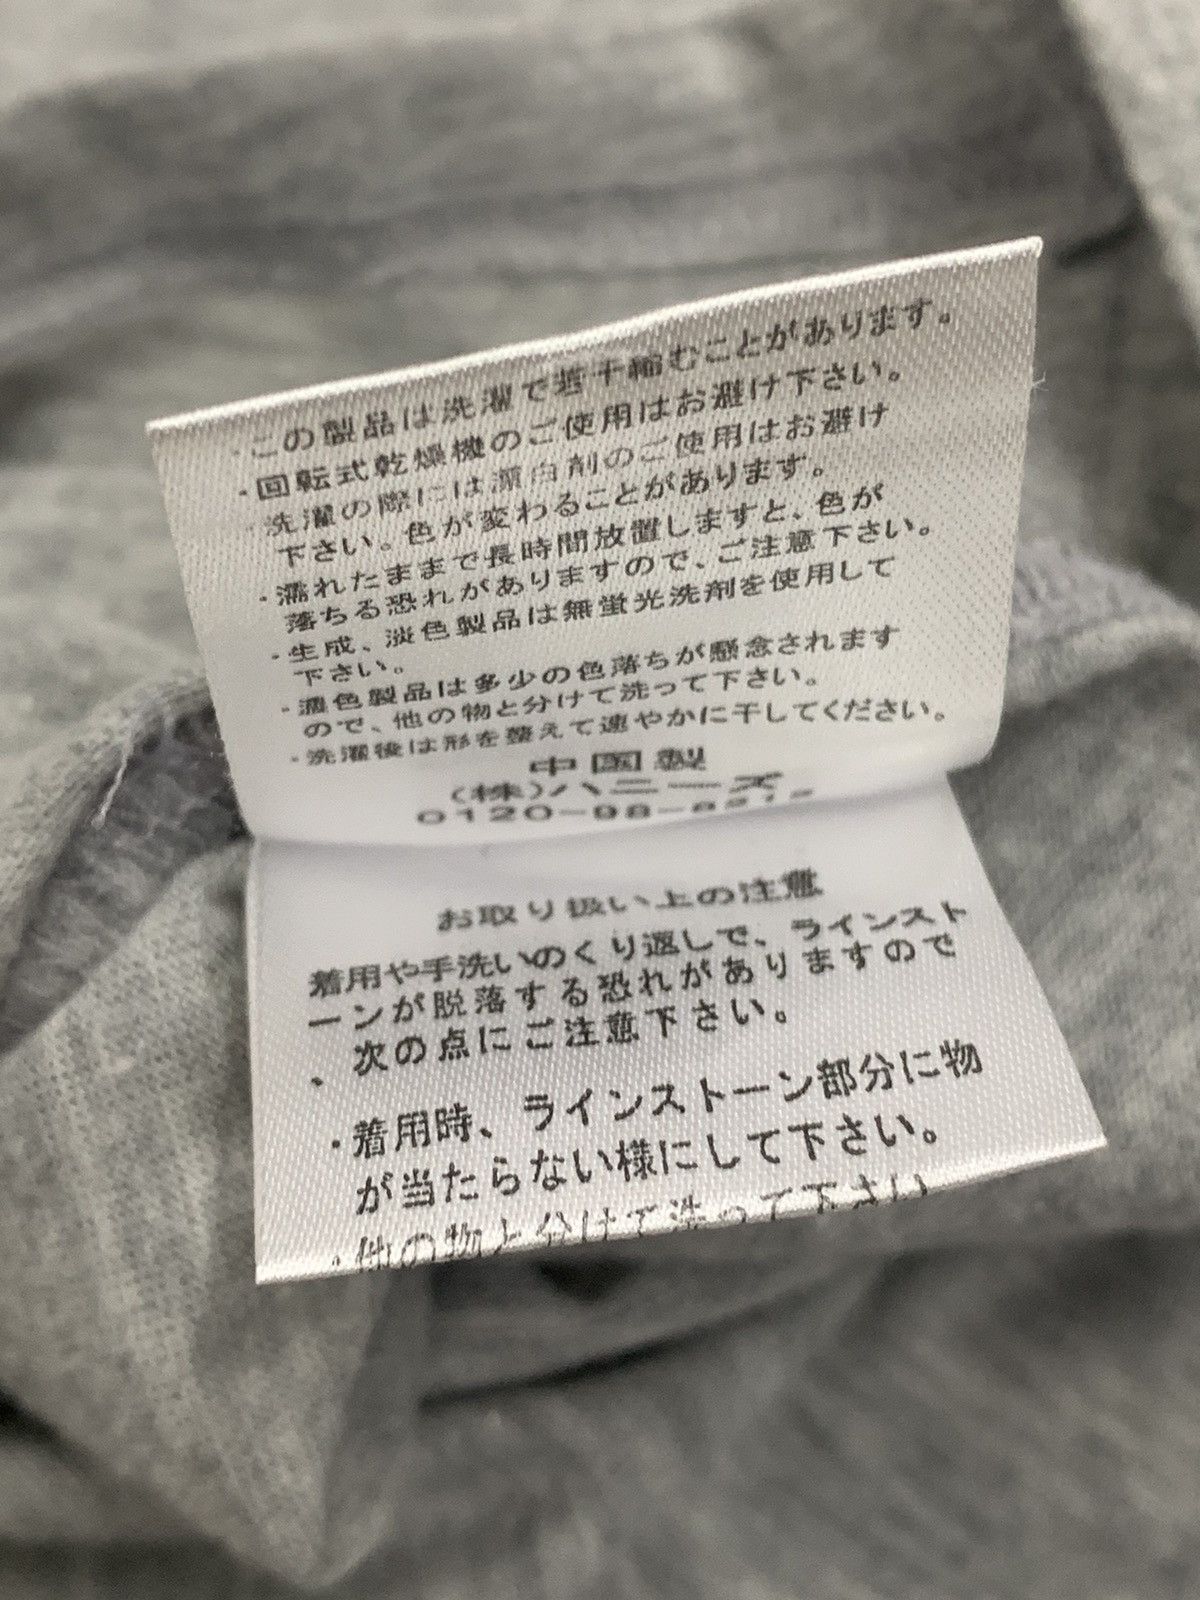 ・この製品は洗濯で若干縮むことがあります。
・回転式乾燥機のご使用はお避け下さい。
・洗濯の際には漂白剤のご使用はお避け
下さい。色が変わることがあります。
・濡れたままで長時間放置しますと、色が
落ちる恐れがありますので、ご注意下さい。
・生成、淡色製品は無蛍光洗剤を使用して
下さい。
・濃色製品は多少の色落ちが懸念されます
ので、他の物と分けて洗って下さい。
・洗濯後は形を整えて速やかに干してください。
中国製
(株)ハニーズ
0120-98-8212
お取り扱い上の注意
着用や手洗いのくり返しで、ラインスト
ーンが脱落する恐れがありますので
、次の点にご注意下さい。
・着用時、ラインストーン部分に物
が当たらない様にして下さい。
・他の物と分けて洗って下さい